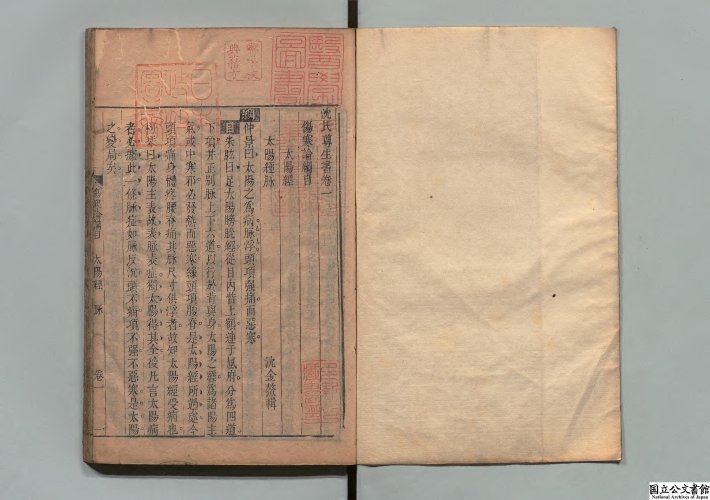 沈氏尊生書卷一
傷寒論綱目
太陽經
太陽經脉
沈金鰲輯
綱 仲景曰太陽之爲病脉浮頭項強痛而惡寒
目 朱肱曰足太陽膀胱經從目内眥上額連于風府分爲四道
下項并正別脉上下六道以行於背與身太陽之經爲諸陽主
氣或中寒邪必發熱而惡寒緣頭項腰脊是太陽經所過處今
頭項痛身體疼腰脊痛其脉尺寸俱浮者故知太陽經受病也
柯琴曰太陽主表故表脉表症獨太陽得其全後凡言太陽病
者必據此一條脉症如脉反沉頭不痛項不强不惡寒是太陽
之變局矣
傷寒論綱目 太陽經 脉 卷一 一
国立公文書館
National Archives of Japan